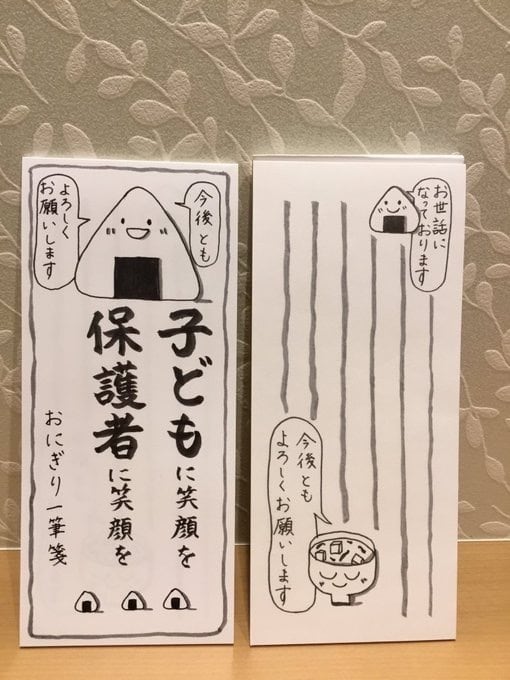 今後とも
よろしく
お願いします
子どもに笑顔を
保護者に笑顔を
おにぎり一筆箋
お世話に
なっております
今後とも
よろしくお願いします